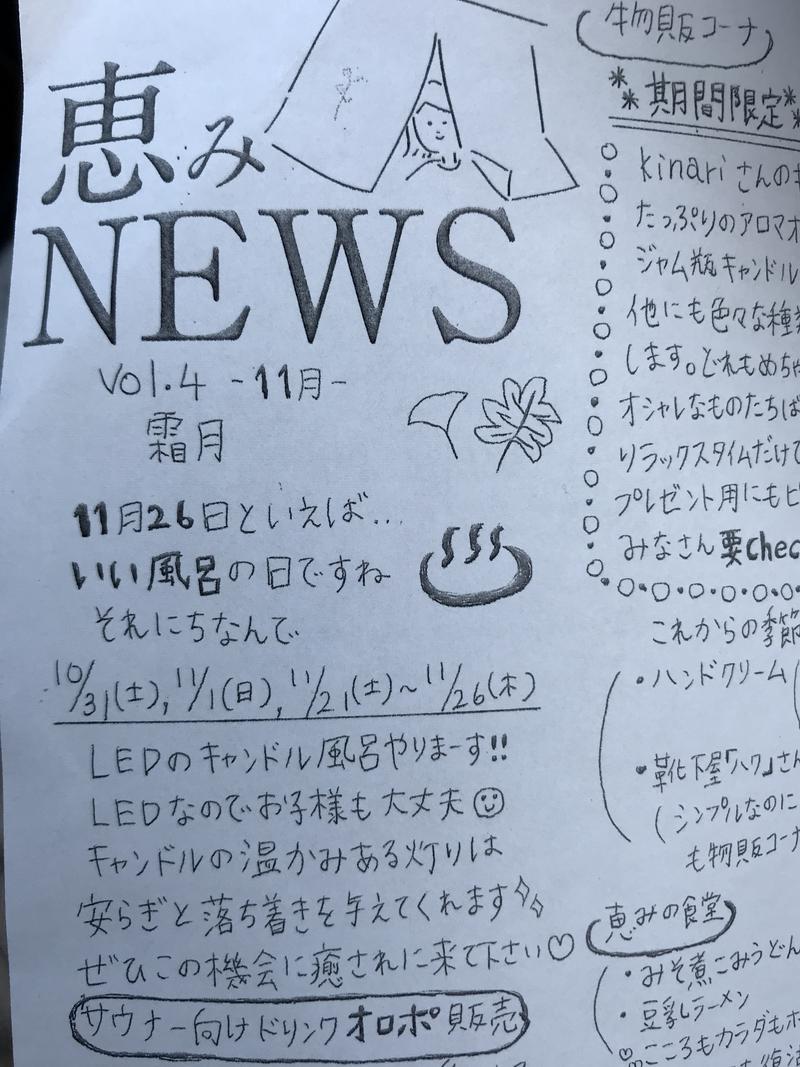 恵み
NEWS
Vol.4 -11月-
霜月
11月26日といえば...
いい風呂の日ですね
それにちなんで
10/31(土), 11/1(日), 11/21(土)~11/26(木)
LEDのキャンドル風呂やりまーす!!
LEDなのでお子様も大丈夫☺
キャンドルの温かみある灯りは
安らぎと落ち着きを与えてくれます
ぜひこの機会に癒されに来て下さい♡
サウナー向けドリンクオロポ販売
物販コーナ
**期間限定**
kinariさんの
たっぷりのアロマオ
ジャム瓶キャンドル
他にも色々な種類
します。どれもめちゃ
オシャレなものたちば
リラックスタイムだけで
プレゼント用にもピ
みなさん要chec
これからの季節
・ハンドクリーム
・靴下屋「ハワ」さん
(シンプルなのに
も物販コーナ
恵みの食堂
・みそ煮こみうどん
・豆乳ラーメン
♡こころもカラダもホ